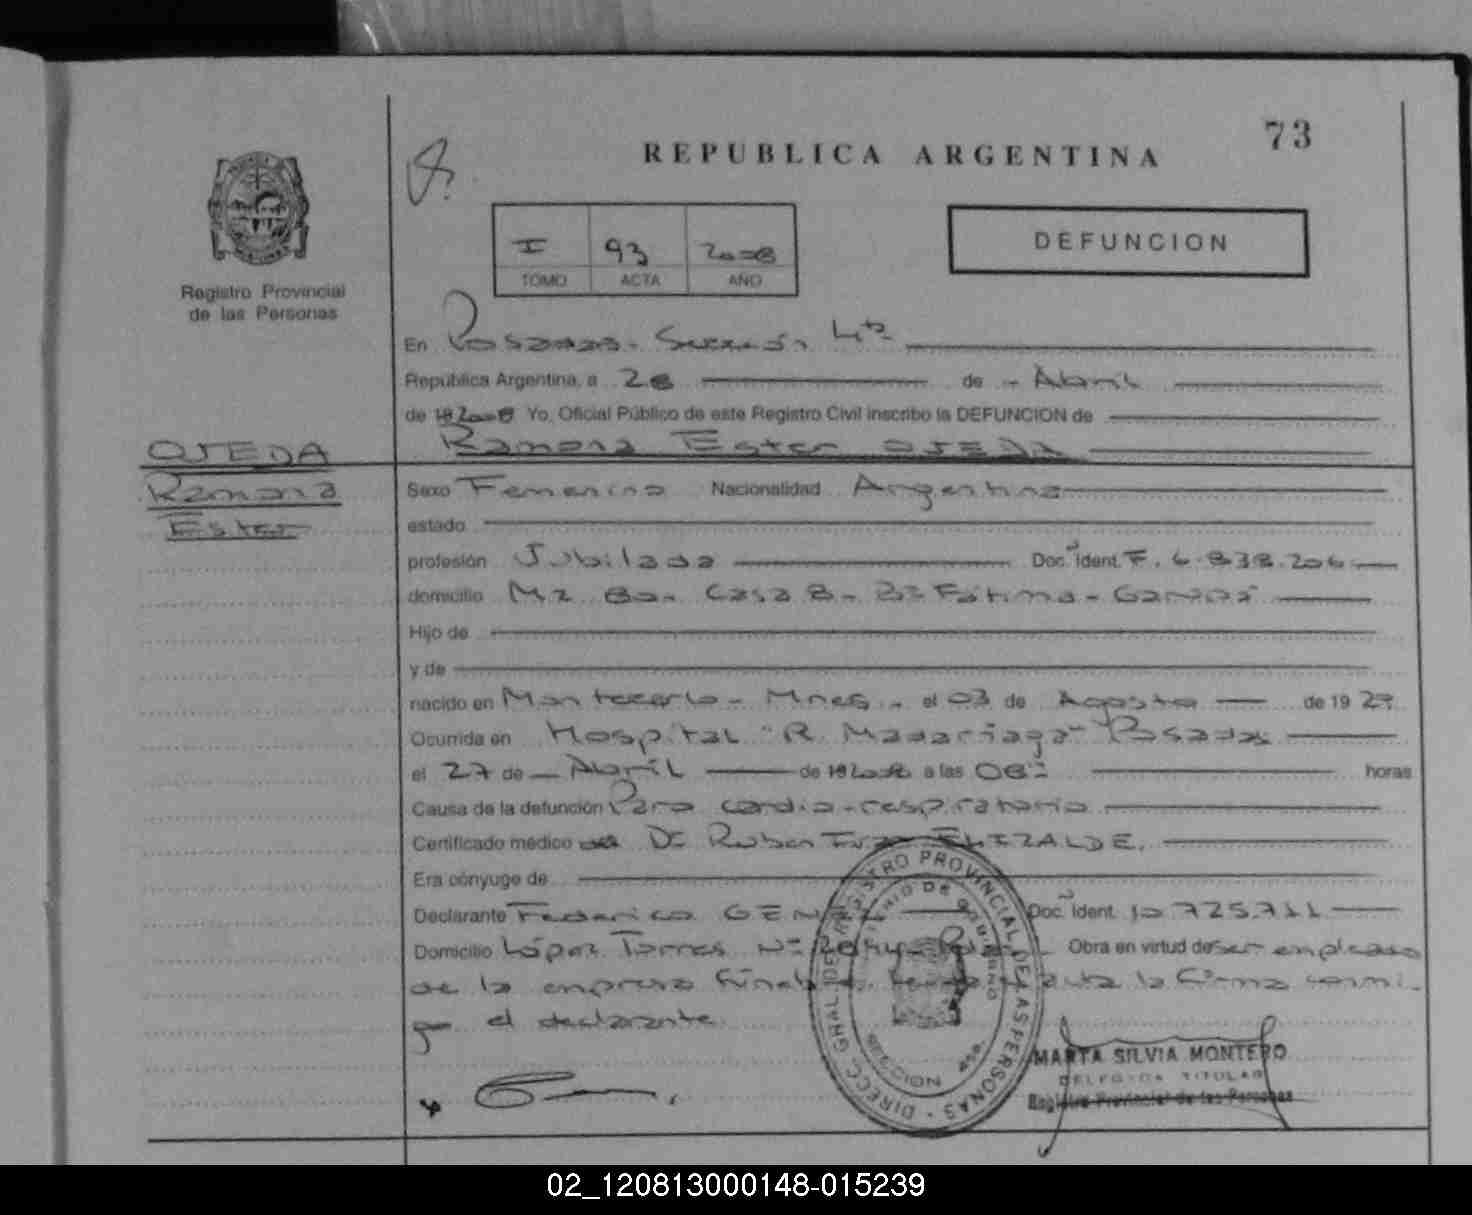 73
REPUBLICA ARGENTINA
I 93 2008
TOMO ACTA AÑO
DEFUNCION
Registro Provincial
de las Personas
En Posadas - Sección 4ta
República Argentina, a 28 de - Abril
de 19 2008 Yo, Oficial Público de este Registro Civil inscribo la DEFUNCION de
Ramona Ester OJEDA
OJEDA
Ramona
Ester
Sexo Femenino Nacionalidad Argentina
estado
profesión Jubilada Doc. Ident. F. 6.838.206
domicilio Mz 80 - Casa 8 - Bº Fátima - Garupá
Hijo de
y de
nacido en Montecarlo - Mnes. - el 03 de Agosto de 19 29
Ocurrida en Hospital "R. Madariaga" Posadas
el 27 de - Abril de 19 2008 a las 08 horas
Causa de la defunción Paro cardio-respiratorio
Certificado médico Dr Ruben ELIZALDE.
Era cónyuge de
Declarante Federico Doc. Ident. 10.725.711
Domicilio López Torres Nº Obra en virtud de ser empleado
de la empresa la firma conmi-
go el declarante.
DIRECC. GRAL. DEL REGISTRO PROVINCIAL DE LAS PERSONAS
MINISTERIO DE GOBIERNO
MARTA SILVIA MONTERO
DELEGADA TITULAR
Registro Provincial de las Personas
02_120813000148-015239